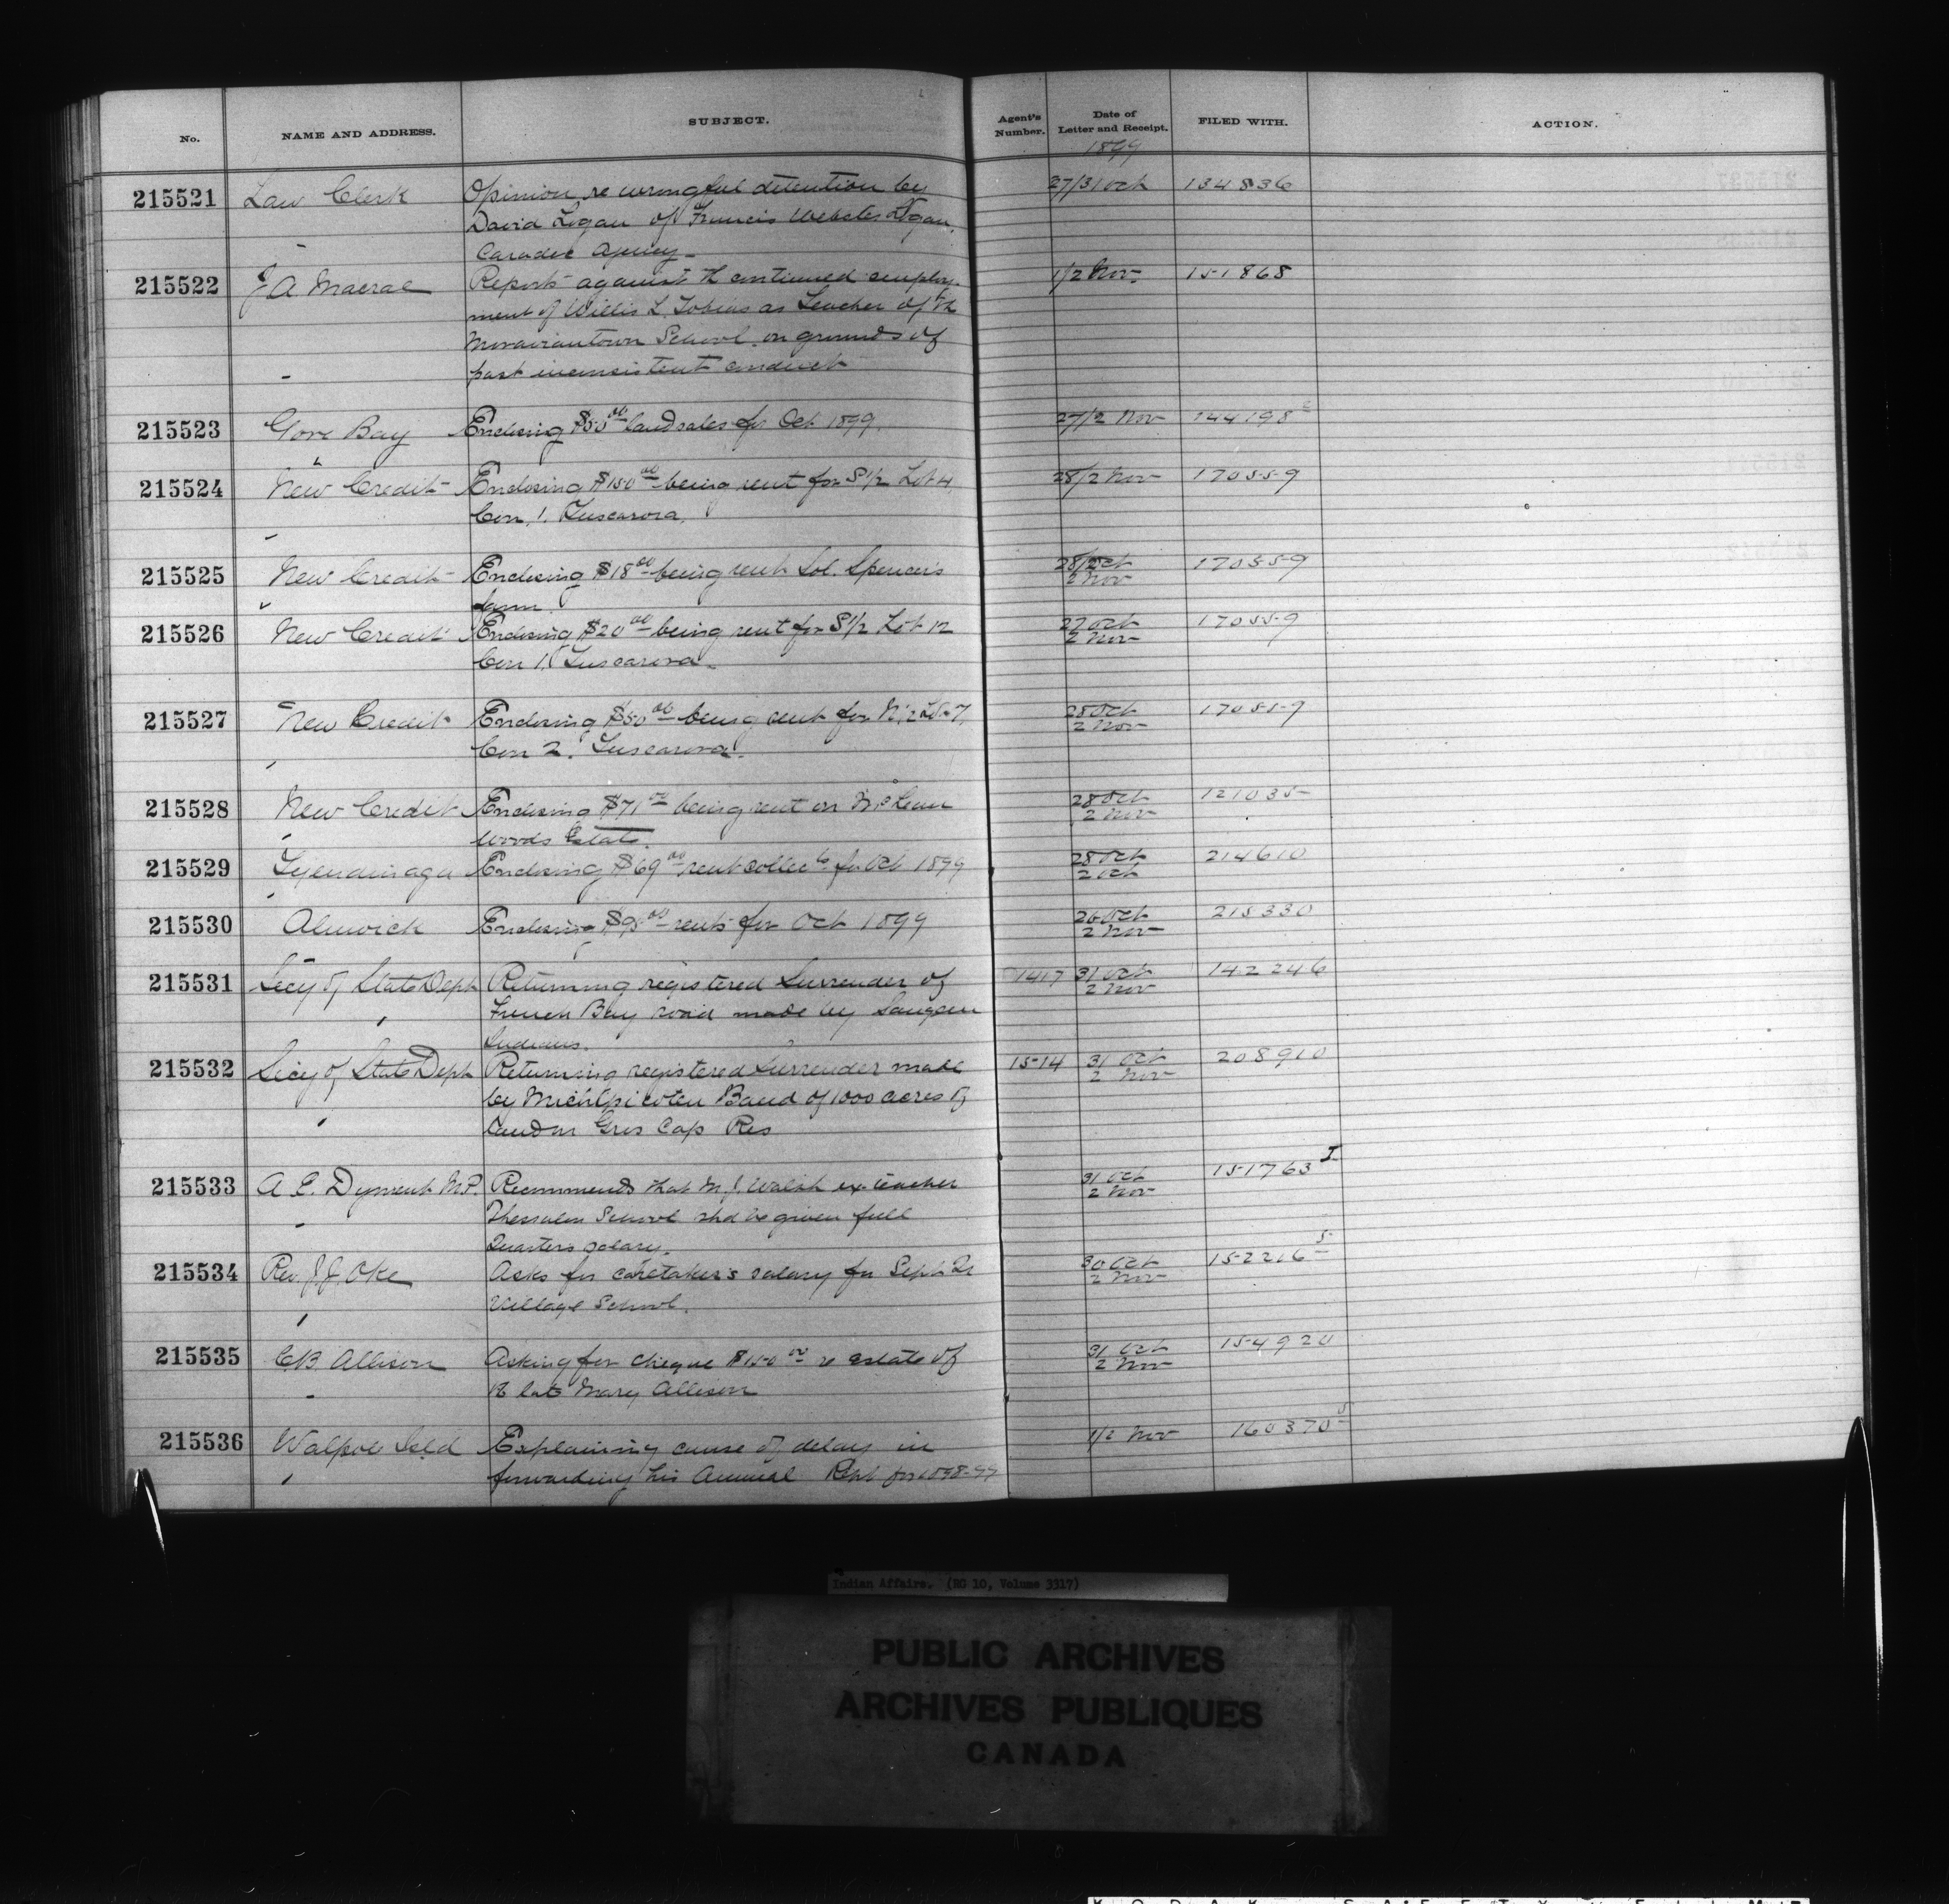 No. NAME AND ADDRESS. SUBJECT. Agent's Number. Date of Letter and Receipt. FILED WITH. ACTION.
1899
215521 Law Clerk Opinion re wrongful detention by 27/31 Oct 134836
David Logan of Francis Webster Logan,
Caradoc Agency
215522 J. A. Macrae Reports against th continued employ- 1/2 Nov. 151868
ment of Willis L. Tobias as Teacher of th
Moraviantown School on grounds of
past inconsistent conduct
215523 Gore Bay Enclosing $50 00 land sales for Oct 1899. 27/2 Nov 144198 2
215524 New Credit Enclosing $150 00 being rent for S 1/2 Lot 4, 28/2 Nov 170559
Con. 1. Tuscarora.
215525 New Credit Enclosing $18 00 being rent Sol. Spencer's 28/2 Oct 170559
farm. 2 Nov
215526 New Credit Enclosing $20 00 being rent for S 1/2 Lot 12 27 Oct 170559
Con 1. Tuscarora. 2 Nov
215527 New Credit Enclosing $50 00 being rent for N 1/2 Lot 7, 28 Oct 170559
Con 2. Tuscarora. 2 Nov
215528 New Credit Enclosing $71 00 being rent on McLean 28 Oct 121035
Woods Estate. 2 Nov
215529 Tyendinaga Enclosing $69 00 rent collec'ts for Oct 1899 28 Oct 214610
2 Oct
215530 Alnwick Enclosing $95 00 rents for Oct 1899 26 Oct 215330
2 Nov
215531 Secy of State Dept Returning registered Surrender of 1417 31 Oct 142246
French Bay road made by Saugeen 2 Nov
Indians.
215532 Secy of State Dept Returning registered Surrender made 1514 31 Oct 208910
by Michipicoten Band of 1000 acres of 2 Nov
land on Gros Cap Res
215533 A. E. Dyment M.P. Recommends that M. J. Walsh ex teacher 31 Oct 151763
Thessalon School shd be given full 2 Nov
Quarters salary.
215534 Rev. J. J. Oke Asks for caretaker's salary for Sept Qr 30 Oct 152216 5
Village School. 2 Nov
215535 C B Allison Asking for cheque $150 00 re estate of 31 Oct 154920
th late Mary Allison 2 Nov
215536 Walpole Isld Explaining cause of delay in 1/2 Nov 160370 5
forwarding his Annual Rept for 1898-99
Indian Affairs. (RG 10, Volume 3317)
PUBLIC ARCHIVES
ARCHIVES PUBLIQUES
CANADA